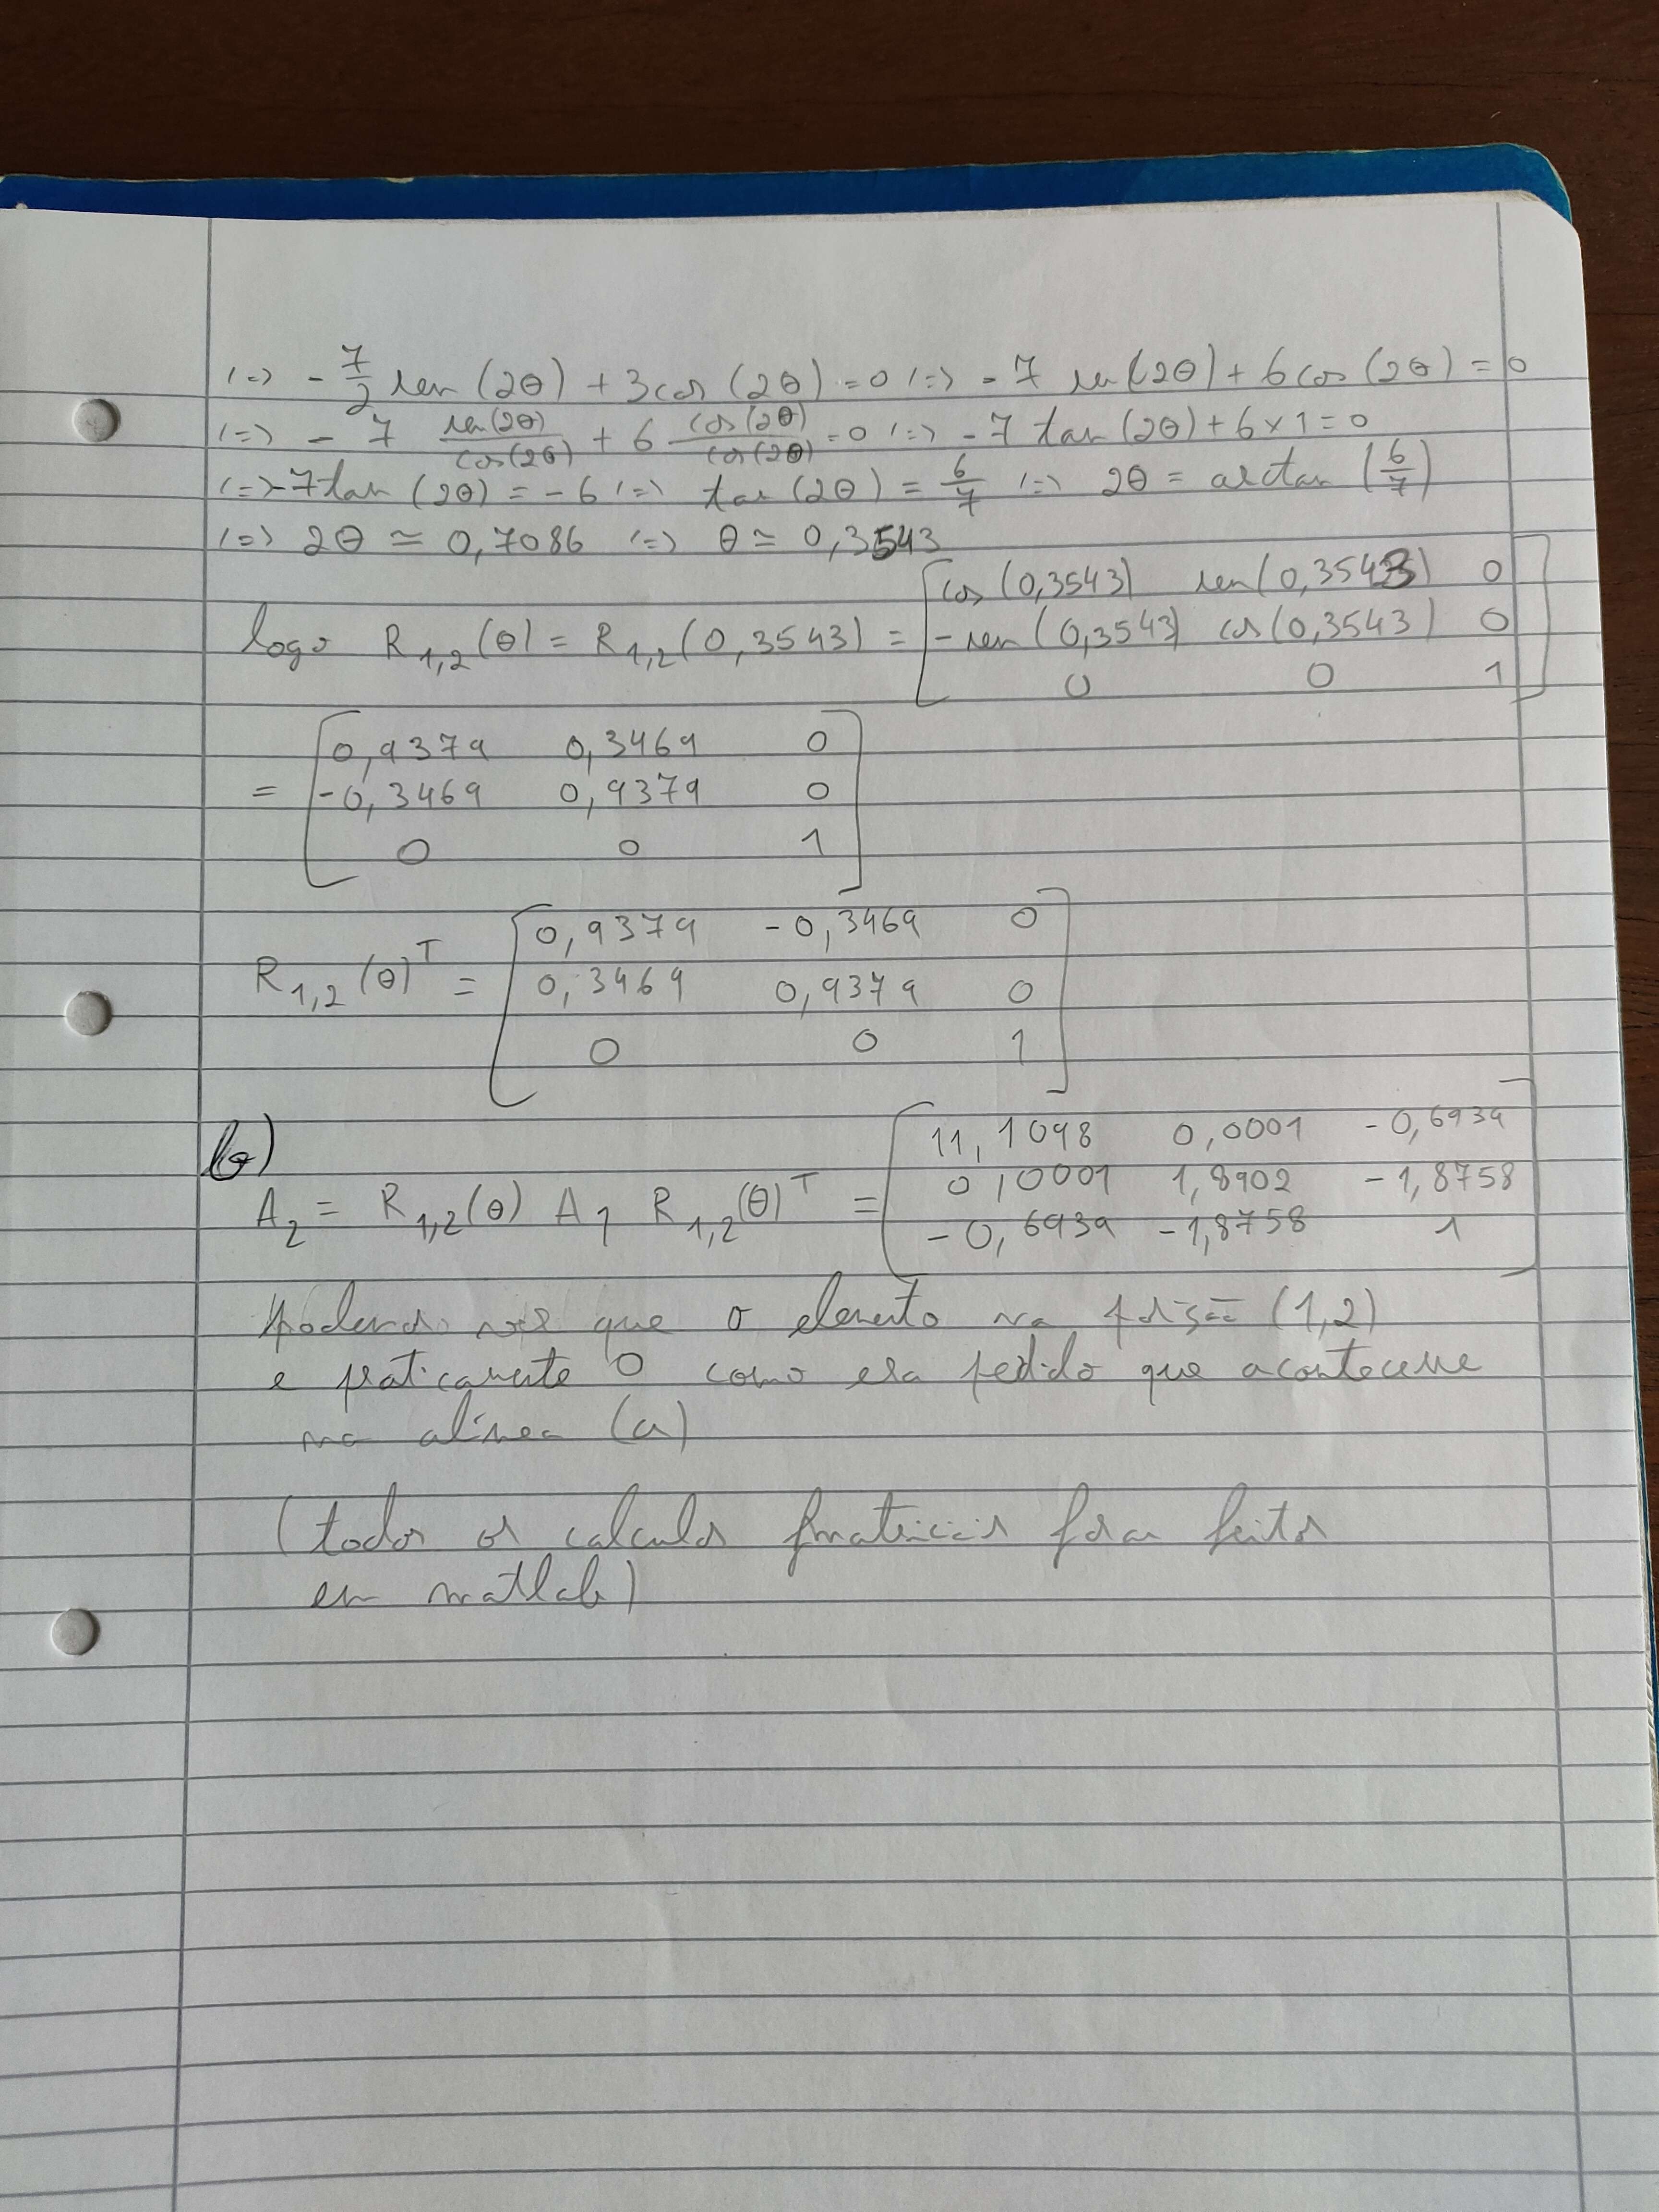 (=) - 7/2 sen (2θ) + 3cos (2θ) = 0 (=) - 7 sen(2θ) + 6 cos (2θ) = 0
(=) - 7 sen(2θ)/cos(2θ) + 6 cos(2θ)/cos(2θ) = 0 (=) - 7 tan (2θ) + 6 × 1 = 0
(=) -7 tan (2θ) = - 6 (=) tan (2θ) = 6/7 (=) 2θ = arctan (6/7)
(=) 2θ ≃ 0,7086 (=) θ ≃ 0,3543
logo R1,2 (θ) = R1,2 (0,3543) = [cos (0,3543) sen (0,3543) 0
-sen (0,3543) cos (0,3543) 0
0 0 1]
= [0,9379 0,3469 0
-0,3469 0,9379 0
0 0 1]
R1,2 (θ)^T = [0,9379 -0,3469 0
0,3469 0,9379 0
0 0 1]
b)
A2 = R1,2 (θ) A1 R1,2 (θ)^T = [11,1098 0,0001 -0,6939
0,0001 1,8902 -1,8758
-0,6939 -1,8758 1]
podendo que o elemento na posição (1,2)
e praticamente 0 como era pedido que acontecesse
na alínea (a)
(todos os calculos matriciais foram feitos
em matlab)